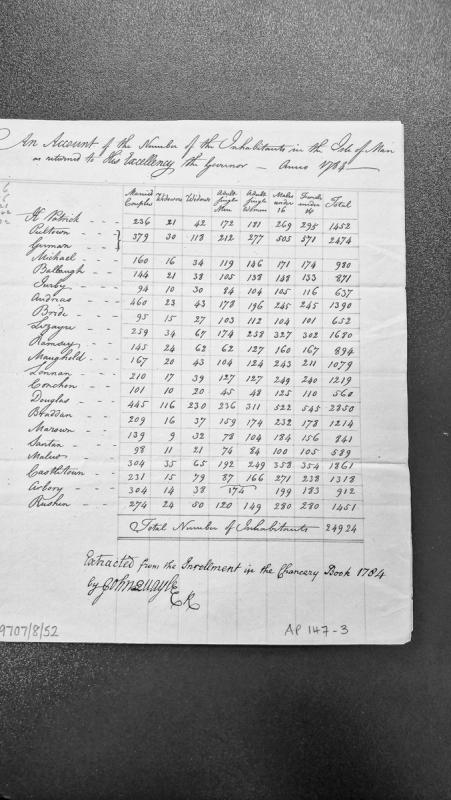 An Account of the Number of the Inhabitants in the Isle of Man
as returned to His Excellency the Governor — Anno 1784 —
Married Couples Widowers Widows Adult Single Men Adult Single Women Males under 16 Females under 14 Total
Kk Patrick - - - 236 21 42 172 181 269 295 1452
Peeltown - - -
German - - - } 379 30 118 212 277 505 571 2474
Michael - - - 160 16 34 119 146 171 174 980
Ballaugh - - - 144 21 38 105 138 148 133 871
Jurby - - - 94 10 30 84 104 105 116 637
Andreas - - - 460 23 43 178 196 245 245 1390
Bride - - - 95 15 27 103 112 104 101 652
Lezayre - - - 259 34 67 174 238 327 302 1680
Ramsey - - - 145 24 62 62 127 160 167 894
Maughold - - - 167 20 43 104 124 243 211 1079
Lonnan - - - 210 17 39 127 127 249 240 1219
Conchon - - - 101 10 20 45 48 125 110 560
Douglas - - - 445 116 230 236 311 522 545 2850
Braddan - - - 209 16 37 159 174 232 178 1214
Marown - - - 139 9 32 78 104 184 156 841
Santan - - - 98 11 21 74 84 100 105 589
Malew - - - 304 35 65 192 249 358 354 1861
Castletown - - - 231 15 79 87 166 271 238 1318
Arbory - - - 304 14 38 174 199 183 912
Rushen - - - 274 24 50 120 149 280 280 1451
Total Number of Inhabitants 24924
Extracted from the Inrollment in the Chancery Book 1784
by John Quayle
C R
9707/8/52
AP 147-3